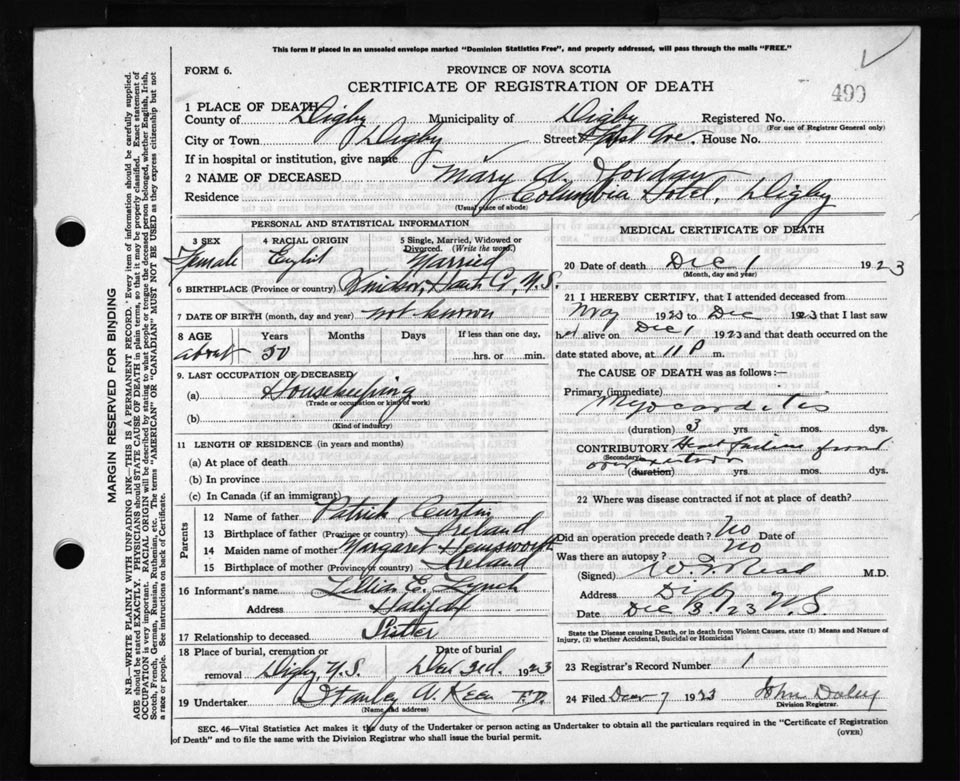 This form if placed in an unsealed envelope marked "Dominion Statistics Free", and properly addressed, will pass through the mails "FREE."
FORM 6.
PROVINCE OF NOVA SCOTIA
CERTIFICATE OF REGISTRATION OF DEATH
490
1 PLACE OF DEATH
County of Digby Municipality of Digby Registered No.
(For use of Registrar General only)
City or Town Digby Street Ave. House No.
If in hospital or institution, give name
2 NAME OF DECEASED Mary A.
Residence Columbia Hotel, Digby
(Usual place of abode)
PERSONAL AND STATISTICAL INFORMATION
3 SEX 4 RACIAL ORIGIN 5 Single, Married, Widowed or Divorced. (Write the word.)
Female English Married
6 BIRTHPLACE (Province or country) Windsor, Hants Co, N.S.
7 DATE OF BIRTH (month, day and year) not known
8 AGE Years Months Days If less than one day,
about 50 hrs. or min.
9. LAST OCCUPATION OF DECEASED
(a) Housekeeping
(Trade or occupation or kind of work)
(b)
(Kind of industry)
11 LENGTH OF RESIDENCE (in years and months)
(a) At place of death
(b) In province
(c) In Canada (if an immigrant)
Parents
12 Name of father Patrick Curtin
13 Birthplace of father (Province or country) Ireland
14 Maiden name of mother Margaret Hempsworth
15 Birthplace of mother (Province or country) Ireland
16 Informant's name Lillian E. Lynch
Address Halifax
17 Relationship to deceased Sister
18 Place of burial, cremation or removal Date of burial
Digby N.S. Dec 3rd 1923
19 Undertaker Stanley A. Keen F.D.
(Name and address)
MEDICAL CERTIFICATE OF DEATH
20 Date of death Dec 1 1923
(Month, day and year)
21 I HEREBY CERTIFY, that I attended deceased from
1923 to Dec 1923 that I last saw
her alive on Dec 1 1923 and that death occurred on the
date stated above, at 11 P m.
The CAUSE OF DEATH was as follows:—
Primary (immediate)
Myocarditis
(duration) 3 yrs. mos. dys.
CONTRIBUTORY Heart failure from
(Secondary) over exertion
(duration) yrs. mos. dys.
22 Where was disease contracted if not at place of death?
Did an operation precede death? No Date of
Was there an autopsy? No
(Signed) M.D.
Address Digby
Date Dec 3/23 N.S.
State the Disease causing Death, or in death from Violent Causes, state (1) Means and Nature of Injury, (2) whether Accidental, Suicidal or Homicidal
23 Registrar's Record Number 1
24 Filed Decr 7 1923 John Daley
Division Registrar.
SEC. 46—Vital Statistics Act makes it the duty of the Undertaker or person acting as Undertaker to obtain all the particulars required in the "Certificate of Registration
of Death" and to file the same with the Division Registrar who shall issue the burial permit.
(OVER)
MARGIN RESERVED FOR BINDING
N.B.—WRITE PLAINLY WITH UNFADING INK—THIS IS A PERMANENT RECORD. Every item of information should be carefully supplied.
AGE should be stated EXACTLY. PHYSICIANS should STATE CAUSE OF DEATH in plain terms, so that it may be properly classified. Exact statement of
OCCUPATION is very important. RACIAL ORIGIN will be described by stating to what people or tongue the deceased person belonged, whether English, Irish,
Scotch, French, German, Russian, Ruthenian, etc. The terms "AMERICAN" or "CANADIAN" MUST NOT BE USED as they express citizenship but not
a race or people. See instructions on back of Certificate.